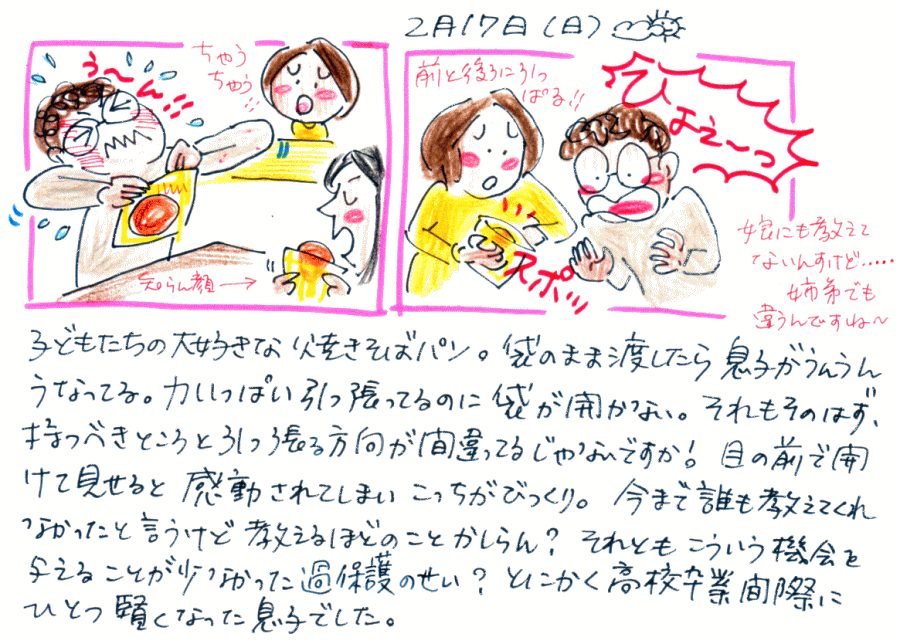 2月17日(日)
ちゃう
ちゃう!!
う〜ん!!
知らん顔→
前と後ろに引っ
ぱる!!
ひょえ〜っ
スポッ
娘にも教えて
ないんすけど.....
姉弟でも
違うんですね〜
子どもたちの大好きな焼きそばパン。袋のまま渡したら息子がうんうん
うなってる。力いっぱい引っ張ってるのに袋が開かない。それもそのはず、
持つべきところと引っ張る方向が間違ってるじゃないですか!目の前で開
けて見せると感動されてしまいこっちがびっくり。今まで誰も教えてくれ
なかったと言うけど教えるほどのことかしらん?それともこういう機会を
与えることが少なかった過保護のせい?とにかく高校卒業間際に
ひとつ賢くなった息子でした。